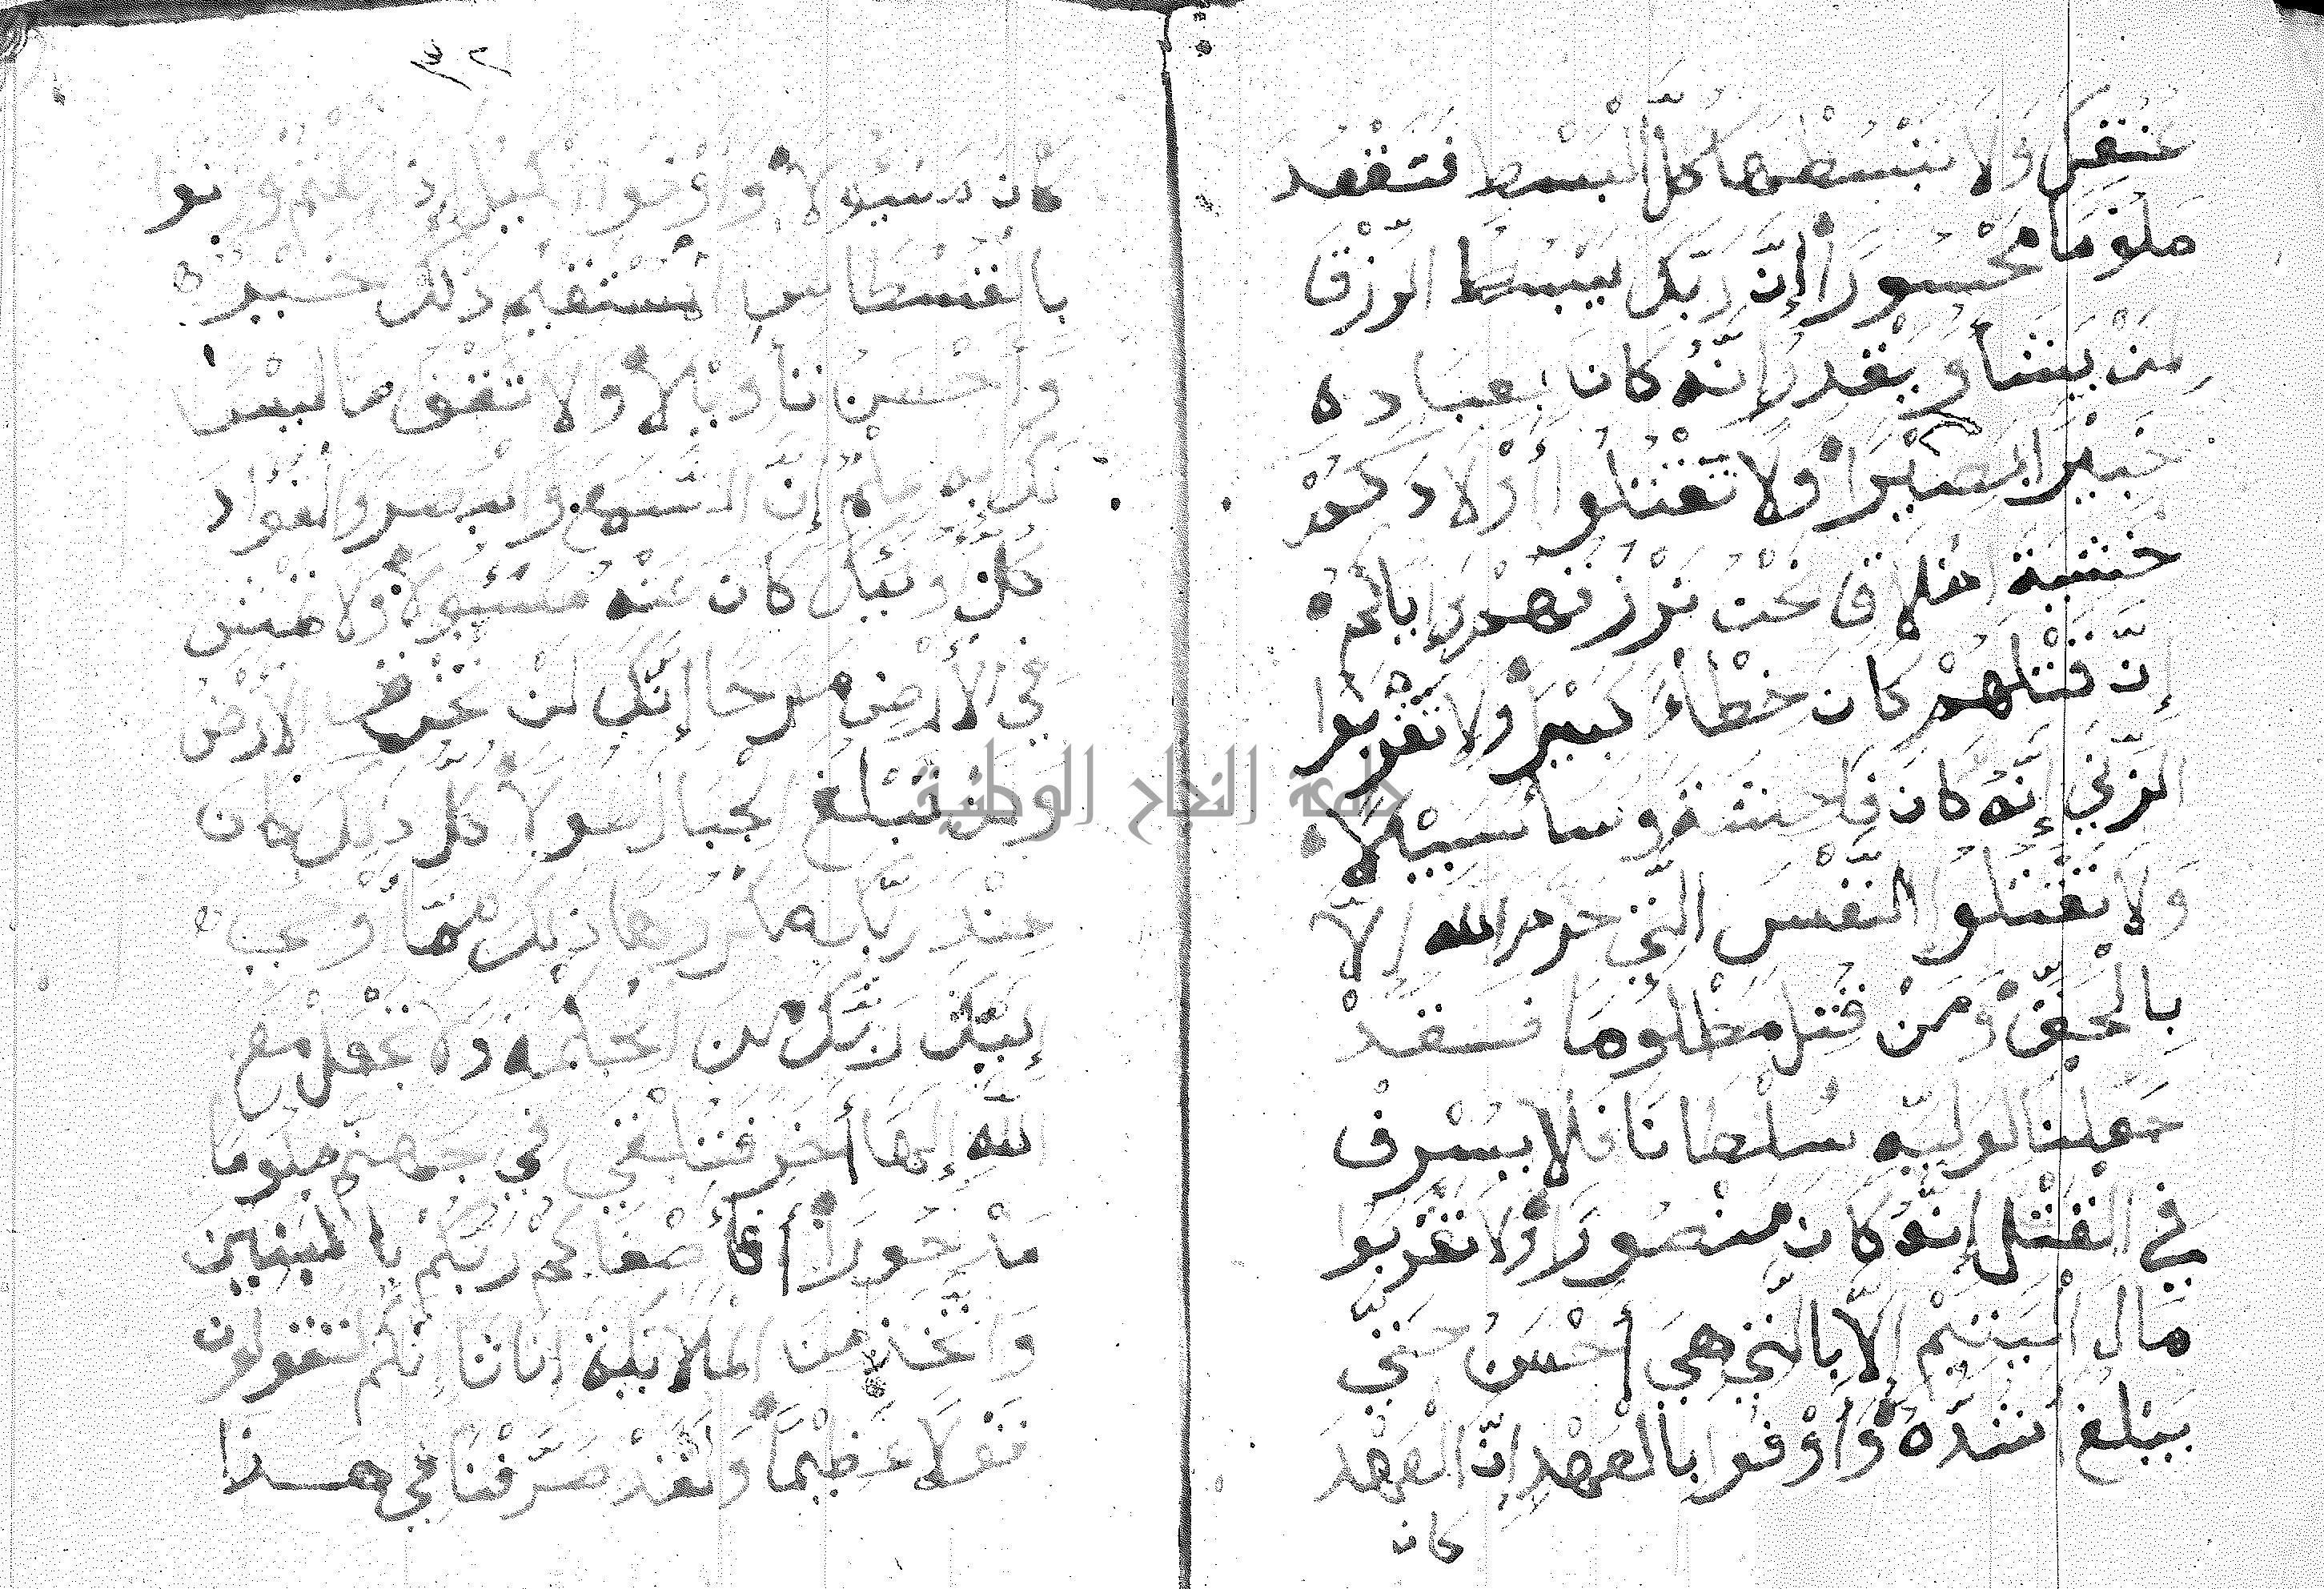 عنقك ولا تبسطها كل البسط فتقعد
ملوما محسورا إن ربك يبسط الرزق
لمن يشا ويقدر إنه كان بعباده
خبيرا بصيرا ولا تقتلوا أولادكم
خشية املاق نحن نرزقهم وإياكم
إن قتلهم كان خطاء كبيرا ولا تقربوا
الزنى إنه كان فاحشة وسا سبيلا
ولا تقتلوا النفس التي حرم الله إلا
بالحق ومن قتل مظلوما فقد
جعلنا لوليه سلطانا فلا يسرف
في القتل إنه كان منصورا ولا تقربوا
مال اليتيم إلا بالتي هي أحسن حتى
يبلغ أشده وأوفوا بالعهد إن العهد
كان
٣٢
كان مسئولا وأوفوا الكيل إذا كلتم وزنوا
بالقسطاس المستقيم ذلك خير
وأحسن تأويلا ولا تقف ما ليس
لك به علم إن السمع والبصر والفؤاد
كل أولئك كان عنه مسئولا ولا تمش
في الأرض مرحا إنك لن تخرق الأرض
ولن تبلغ الجبال طولا كل ذلك كان
عند ربك مكروها ذلك مما أوحى
إليك ربك من الحكمة ولا تجعل مع
الله إلها أخر فتلقى في جهنم ملوما
مدحورا أفأصفاكم ربكم بالبنين
واتخذ من الملائكة اناثا إنكم لتقولون
قولا عظيما ولقد صرفنا في هذا
جامعة النجاح الوطنية